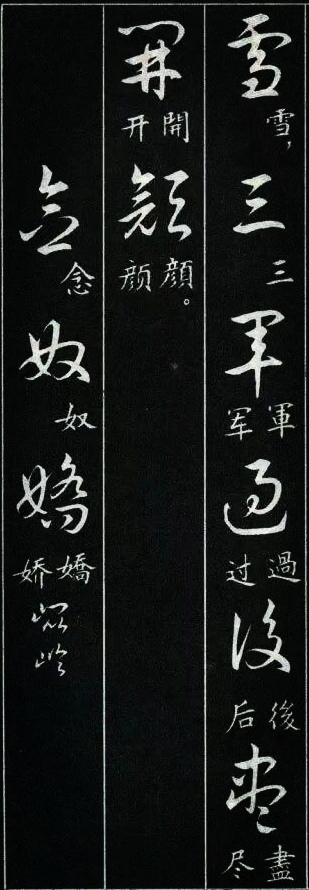 雪 雪， 三 三 軍 軍 军 過 過 过 後 後 后 盡 盡 尽
開 開 开 顔 顔。 颜
念 念 奴 奴 嬌 嬌 娇 崐崘